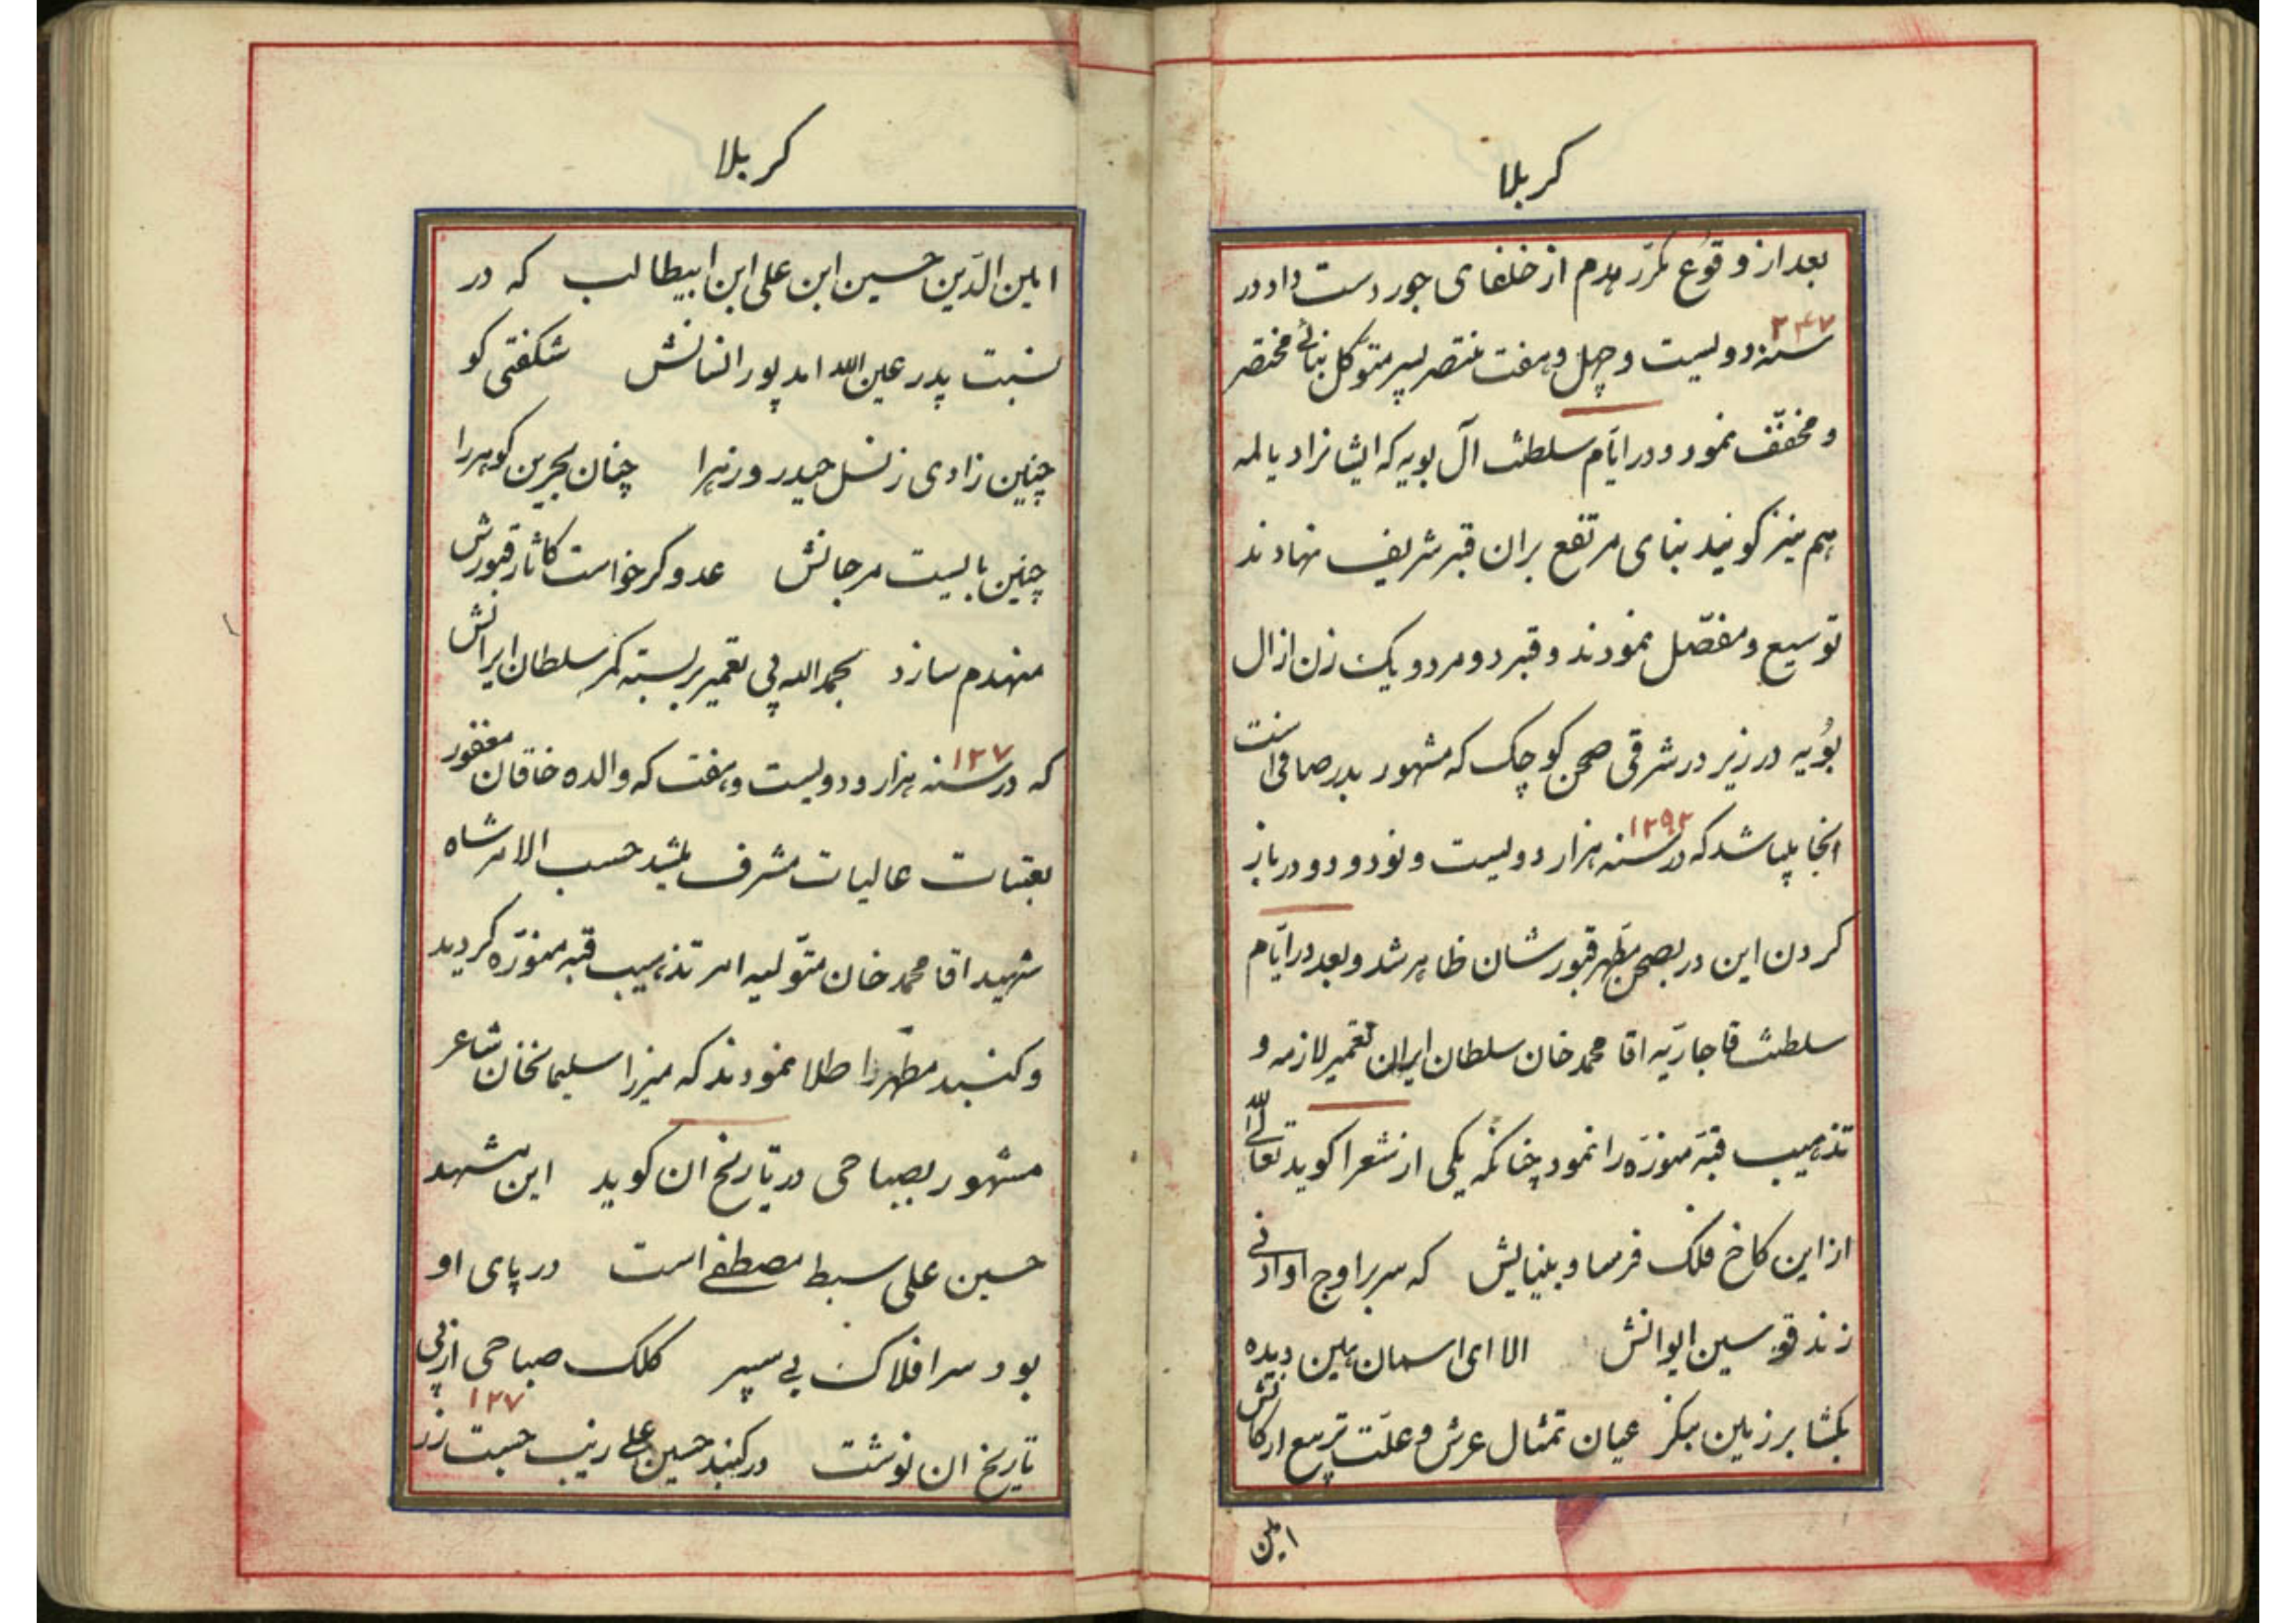 کربلا
بعد از وقوع مکرّر هدم از خلفای جور دست داد در
۲۴۷
سنه دولیست و چهل و هفت منتصر پسر متوکّل بنائی مختصر
و مخفّف نمود و در ایّام سلطنت آل بویه که ایشانرا دیالمه
هم نیز کویند بنای مرتفع بران قبر شریف نهادند
توسیع و مفصّل نمودند و قبر دو مرد و یک زن از ال
بُویه در زیر در شرقی صحن کوچک که مشهور بدر صافی است
انجا میباشد که در سنه هزار دولیست و نود و دو در باز
۱۲۹۲
کردن این در بصحن مطهر قبورشان ظاهر شد و بعد در ایّام
سلطنت قاجاریّه اقا محمد خان سلطان ایران تعمیر لازمه و
تذهیب قبّه منوّره را نمود چنانکه یکی از شعرا کوید تعالی الله
از این کاخ فلک فرسا و بنیایش که سر بر اوج او ادنی
زند قوسین ایوانش الا ای اسمان بین دیده
بکشا بر زمین بنکر عیان تمثال عرش و علّت تربیع ارکانش
امین
کربلا
امین الدّین حسین ابن علی ابن ابیطالب که در
نسبت پدر عین الله امد پور انسانش شکفتی کو
چنین زادی ز نسل حیدر و زهرا چنان بحرین کوهر را
چنین بالیست مرجانش عدو کر خواست کاثار قبورش
منهدم سازد بحمد الله پی تعمیر بر بسته کمر سلطان ایرانش
۱۲۷
که در سنه هزار و دولیست و هفت که والده خاقان مغفور
بعتبات عالیات مشرف میشد حسب الامر شاه
شهید اقا محمد خان متوّلیه امر تذهیب قبّه منوّره کردید
و کنبد مطهّر را طلا نمودند که میرزا سلیمانخان شاعر
مشهور بصباحی در تاریخ ان کوید این مشهد
حسین علی سبط مصطفی است در پای او
بود سر افلاک پی سپر کلک صباحی از پی
۱۲۷
تاریخ ان نوشت در کنبد حسین علی زیب جست زر